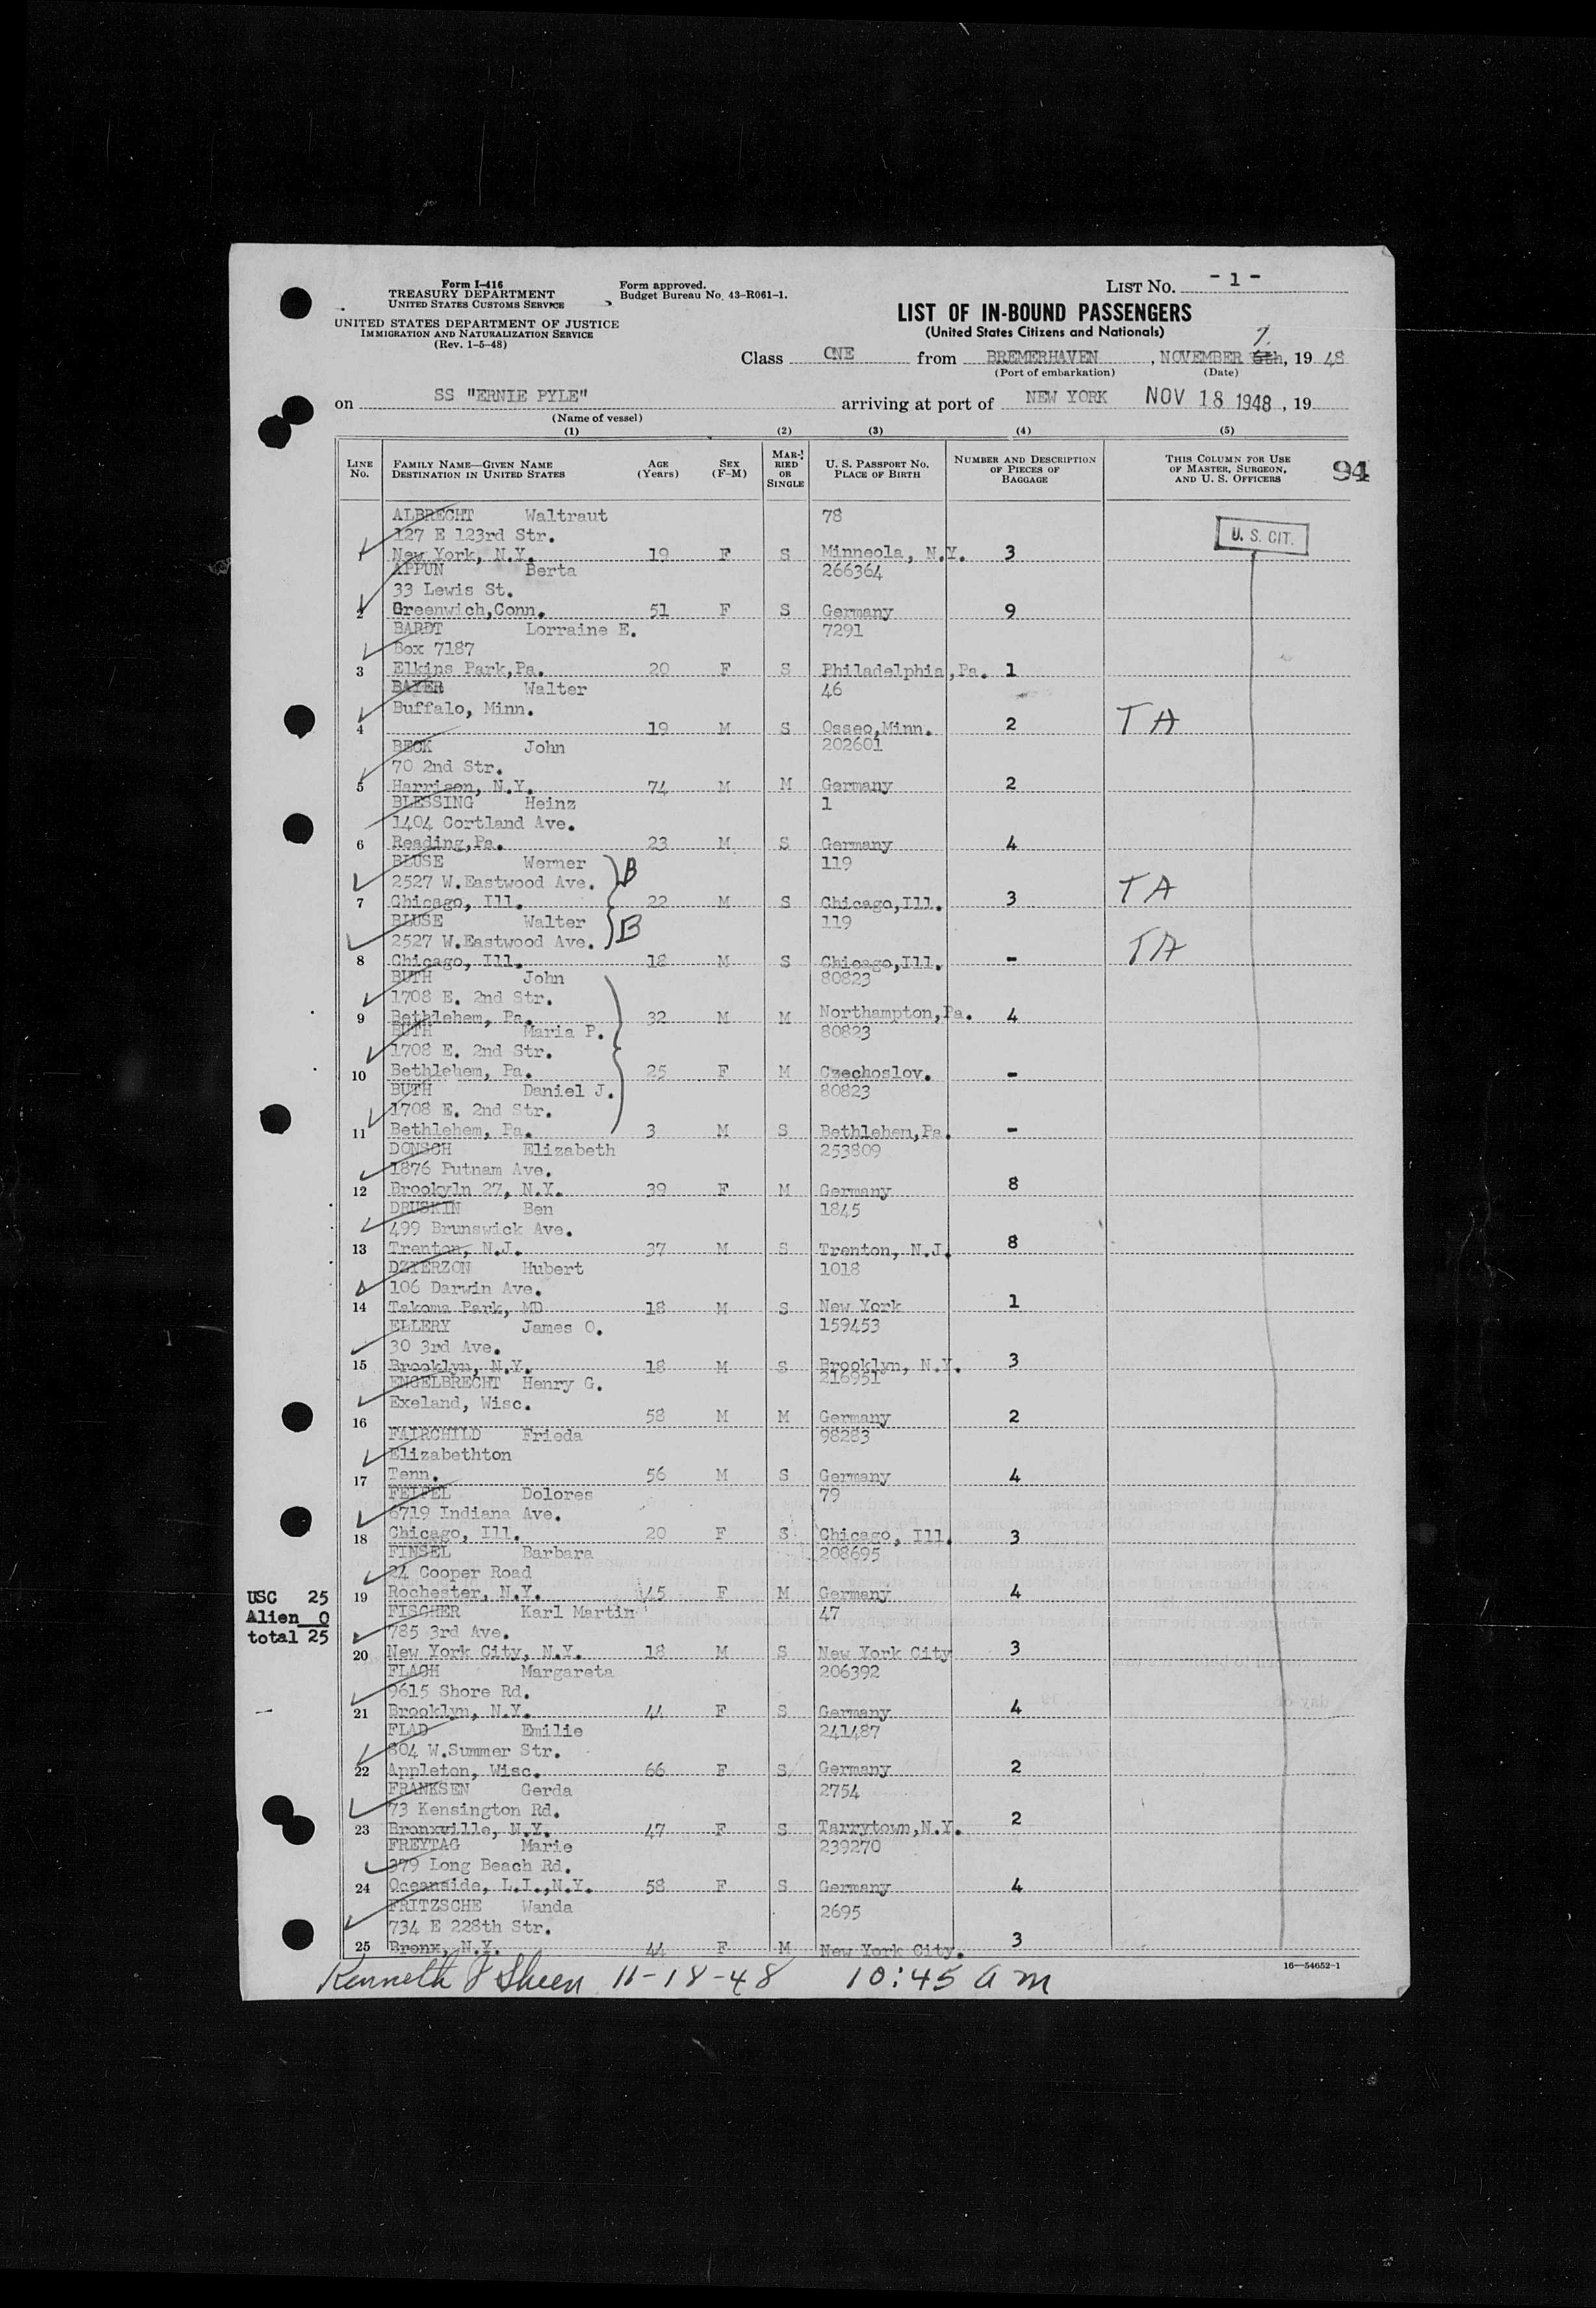 Form I-416
TREASURY DEPARTMENT
UNITED STATES CUSTOMS SERVICE
UNITED STATES DEPARTMENT OF JUSTICE
IMMIGRATION AND NATURALIZATION SERVICE
(Rev. 1-5-48)
Form approved.
Budget Bureau No. 43-R061-1.
LIST NO. - 1 -
LIST OF IN-BOUND PASSENGERS
(United States Citizens and Nationals)
7.
Class ONE from BREMERHAVEN, NOVEMBER 6th, 19 48
(Port of embarkation) (Date)
on SS "ERNIE PYLE" arriving at port of NEW YORK NOV 18 1948, 19
(Name of vessel)
(1) (2) (3) (4) (5)
LINE NO. FAMILY NAME—GIVEN NAME DESTINATION IN UNITED STATES AGE (YEARS) SEX (F-M) MARRIED OR SINGLE U. S. PASSPORT NO. PLACE OF BIRTH NUMBER AND DESCRIPTION OF PIECES OF BAGGAGE THIS COLUMN FOR USE OF MASTER, SURGEON, AND U. S. OFFICERS 94
ALBRECHT Waltraut 78
127 E 123rd Str. U. S. CIT.
1 New York, N.Y. 19 F S Minneola, N.Y. 3
APPUN Berta 266364
33 Lewis St.
2 Greenwich,Conn. 51 F S Germany 9
BARDT Lorraine E. 7291
Box 7187
3 Elkins Park,Pa. 20 F S Philadelphia,Pa. 1
BAYER Walter 46
Buffalo, Minn.
4 19 M S Osseo,Minn. 2 TA
BECK John 202601
70 2nd Str.
5 Harrison, N.Y. 74 M M Germany 2
BLESSING Heinz 1
1404 Cortland Ave.
6 Reading,Pa. 23 M S Germany 4
BLUSE Werner B 119
2527 W.Eastwood Ave.
7 Chicago, Ill. 22 M S Chicago,Ill. 3 TA
BLUSE Walter B 119
2527 W.Eastwood Ave.
8 Chicago, Ill. 18 M S Chicago,Ill. - TA
BUTH John 80823
1708 E. 2nd Str.
9 Bethlehem, Pa. 32 M M Northampton,Pa. 4
BUTH Maria P. 80823
1708 E. 2nd Str.
10 Bethlehem, Pa. 25 F M Czechoslov. -
BUTH Daniel J. 80823
1708 E. 2nd Str.
11 Bethlehem, Pa. 3 M S Bethlehem,Pa. -
DONSCH Elizabeth 253809
1876 Putnam Ave.
12 Brookyln 27, N.Y. 39 F M Germany 8
DRUSKIN Ben 1845
499 Brunswick Ave.
13 Trenton, N.J. 37 M S Trenton, N.J. 8
DZIERZON Hubert 1018
106 Darwin Ave.
14 Takoma Park, MD 18 M S New York 1
ELLERY James O. 159453
30 3rd Ave.
15 Brooklyn, N.Y. 18 M S Brooklyn, N.Y. 3
ENGELBRECHT Henry G. 216951
Exeland, Wisc.
16 58 M M Germany 2
FAIRCHILD Frieda 98283
Elizabethton
17 Tenn. 56 M S Germany 4
FEIPEL Dolores 79
6719 Indiana Ave.
18 Chicago, Ill. 20 F S Chicago, Ill. 3
FINSEL Barbara 208695
24 Cooper Road
19 Rochester, N.Y. 45 F M Germany 4
USC 25
Alien 0
total 25
FISCHER Karl Martin 47
785 3rd Ave.
20 New York City, N.Y. 18 M S New York City 3
FLACH Margareta 206392
9615 Shore Rd.
21 Brooklyn, N.Y. 44 F S Germany 4
FLAD Emilie 241487
804 W.Summer Str.
22 Appleton, Wisc. 66 F S Germany 2
FRANKSEN Gerda 2754
73 Kensington Rd.
23 Bronxville, N.Y. 47 F S Tarrytown,N.Y. 2
FREYTAG Marie 239270
379 Long Beach Rd.
24 Oceanside, L.I.,N.Y. 58 F S Germany 4
FRITZSCHE Wanda 2695
734 E 228th Str.
25 Bronx, N.Y. 44 F M New York City. 3
16—54652-1
Kenneth J Sheen 11-18-48 10:45 a m